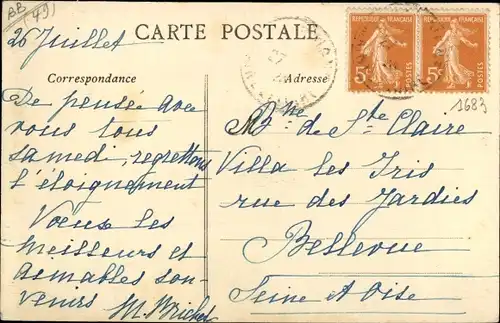 AB
(49)
CARTE POSTALE
26 Juillet
Correspondance
Adresse
REPUBLIQUE FRANÇAISE
REPUBLIQUE FRANÇAISE
5c
5c
1683
De pensée avec
vous tous
samedi, regrettons
l'éloignement
Voeux les
meilleurs et
aimables sou-
venirs
de Ste Claire
Villa les Iris
rue des Jardies
Bellevue
Seine & Oise